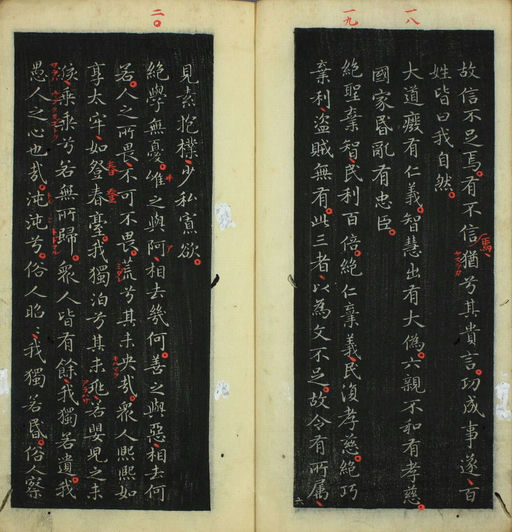 一八
一九
故信不足焉有不信猶兮其貴言功成事遂百
姓皆曰我自然
大道癈有仁義智慧出有大偽六親不和有孝慈
國家昬亂有忠臣
絕聖棄智民利百倍絕仁棄義民復孝慈絕巧
棄利盜賊無有此三者以為文不足故令有所属
六
二〇
見素抱樸少私寡欲
絕學無憂唯之與阿相去幾何善之與惡相去何
若人之所畏不可不畏荒兮其未央哉眾人熙熙如
享太牢如登春臺我獨泊兮其未兆若嬰兒之未
孩乘乘兮若無所歸眾人皆有餘我獨若遺我
愚人之心也哉沌沌兮俗人昭〻我獨若昬俗人察